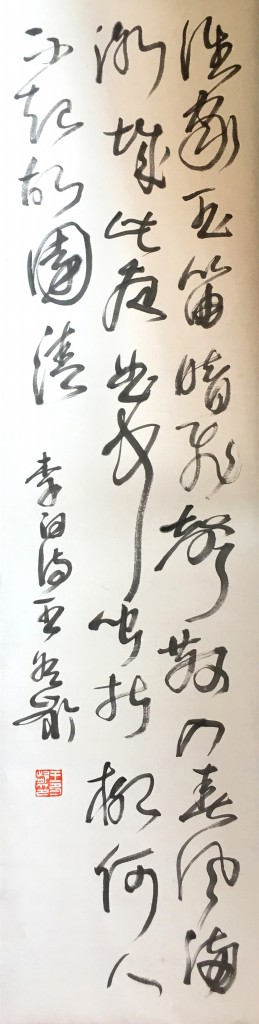 誰家玉笛暗飛聲散入春風滿
洛城此夜曲中聞折柳何人
不起故園情
李白詩王冬齡